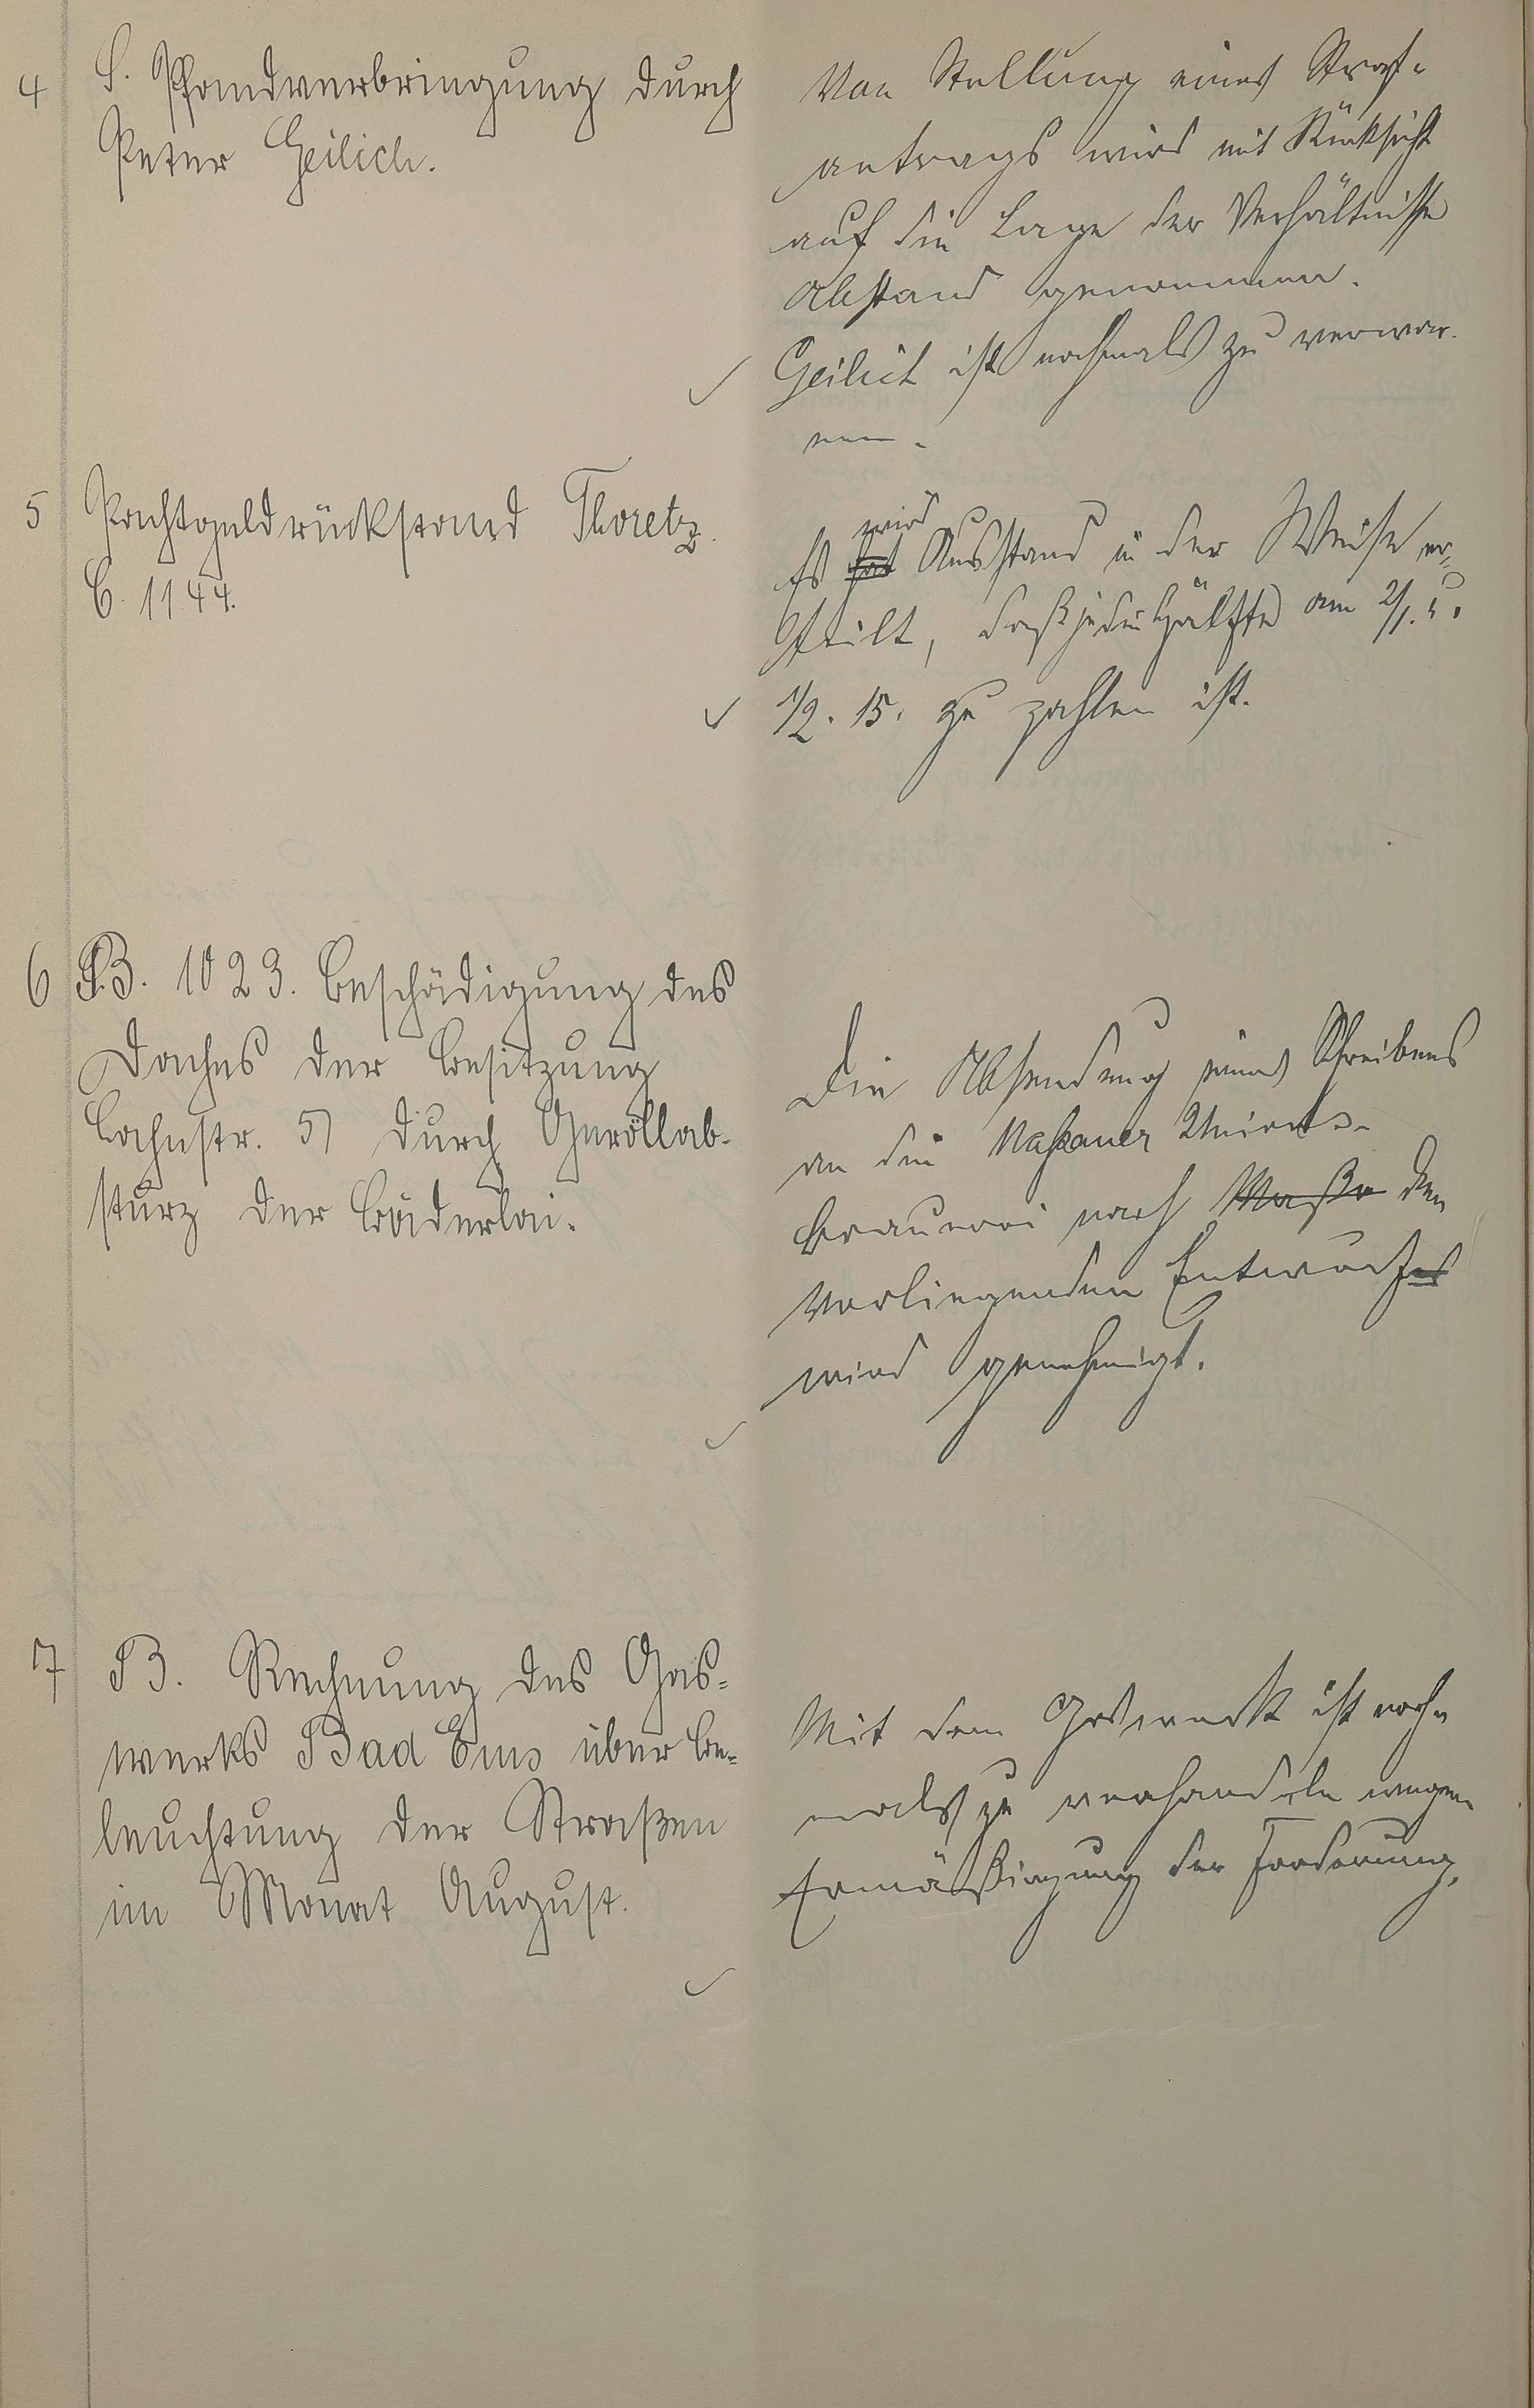 4 S. Pfandverbringung durch
Peter Geilich.
Von Stellung eines Straf-
antrags wird mit Rücksicht
auf die Lage der Verhältnisse
Abstand genommen.
Geilich ist nochmals zu verwar-
nen.
5 Pachtgeldrückstand Thoretz.
C. 1144.
wird
Es hat Ausstand in der Weise er-
theilt, daß je die Hälfte am 2/1. u.
1/2. 15. zu zahlen ist.
6 B. 1023. Beschädigung des
Daches der Besitzung
Lahnstr. 51 durch Geröllab-
sturz der Bäderlai.
Die Absendung eines Schreibens
an die Nassauer Unions-
brauerei nach Maßg den
vorliegenden Entwurfes
wird genehmigt.
7 B. Rechnung des Gas-
werks Bad Ems über Be-
leuchtung der Straßen
im Monat August.
Mit dem Gaswerk ist noch-
mals zu verhandeln wegen
Ermäßigung der Forderung.